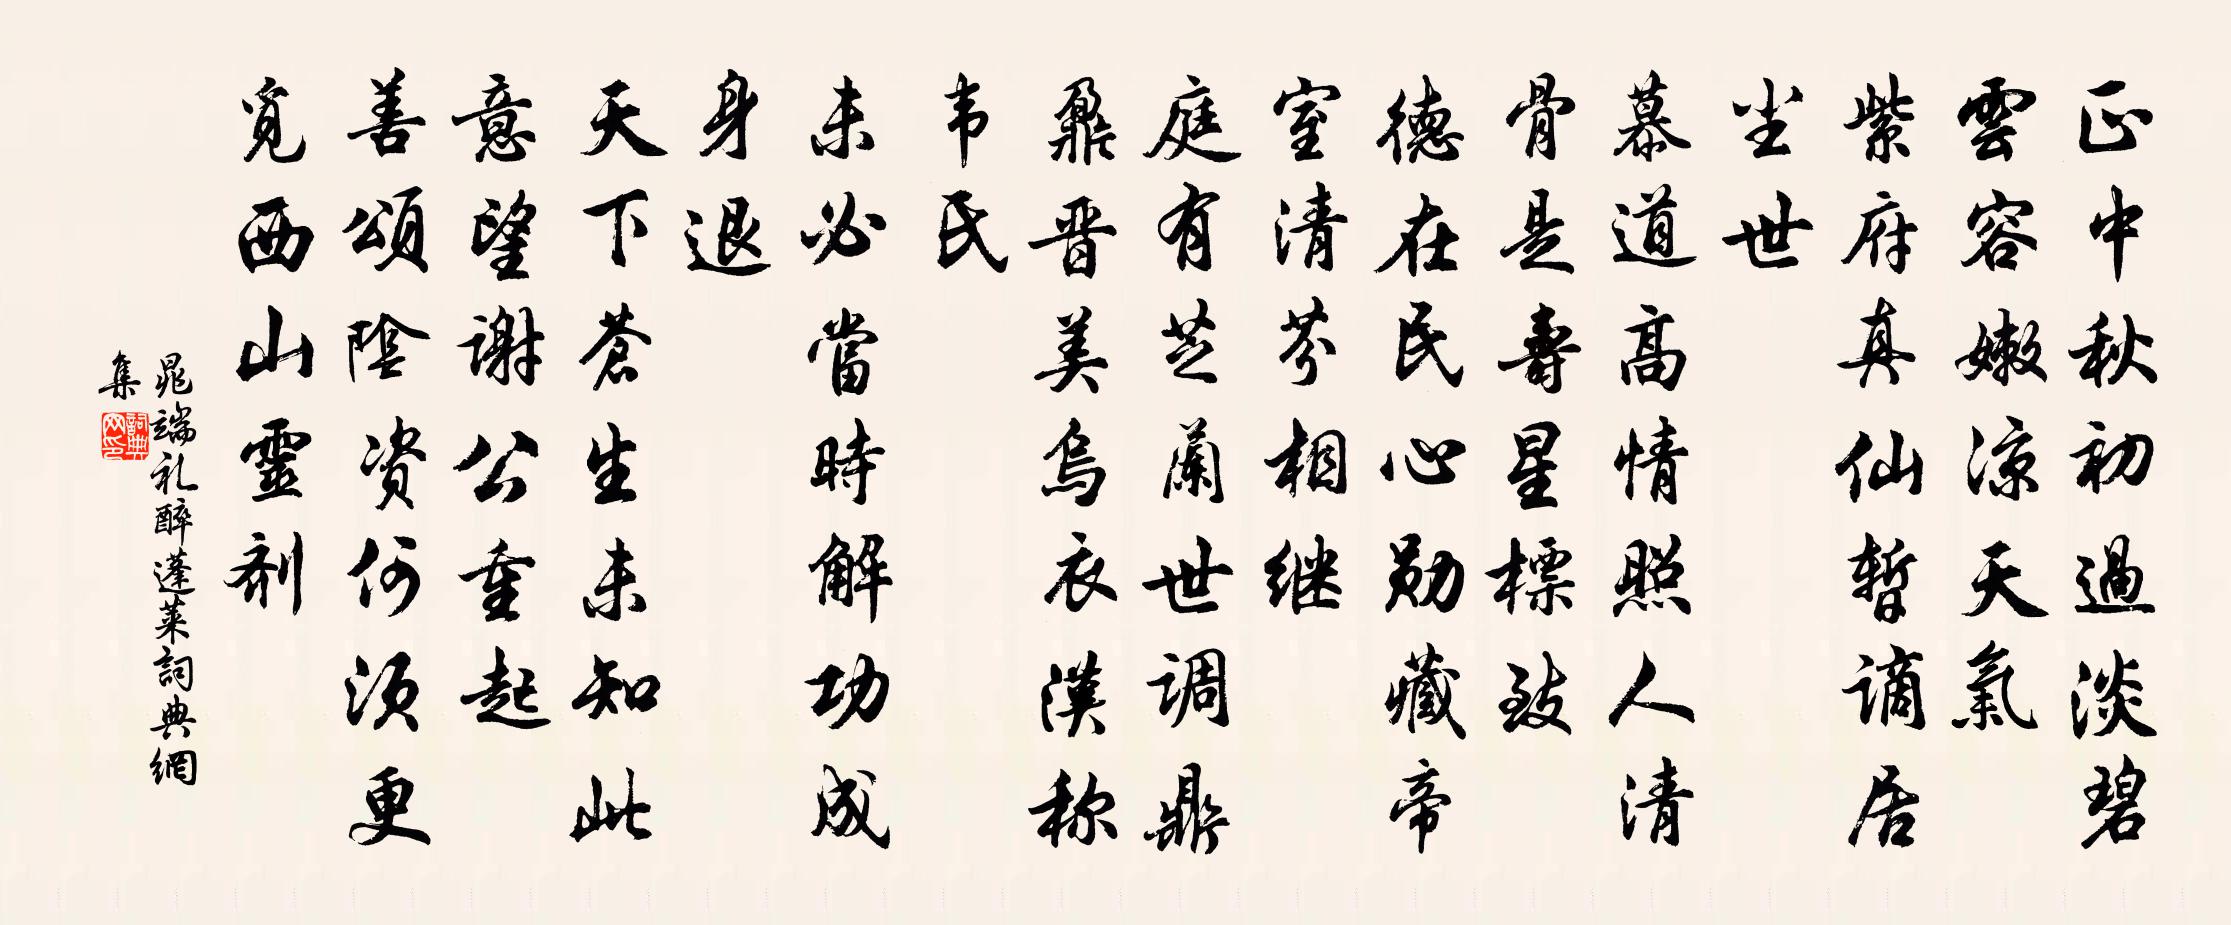 正中秋初過淡碧
雲容嫩涼天氣
紫府真仙暫謫居
尘世
慕道高情照人清
骨是壽星標致
德在民心勋藏帝
室清芬相继
庭有芝蘭世调鼎
鼐晋美烏衣漢称
韦氏
未必當時解功成
身退
天下蒼生未知此
意望謝公重起
善頌陰资何須更
覓西山靈剂
晁端礼醉蓬莱詞典網
集
詞典
网印